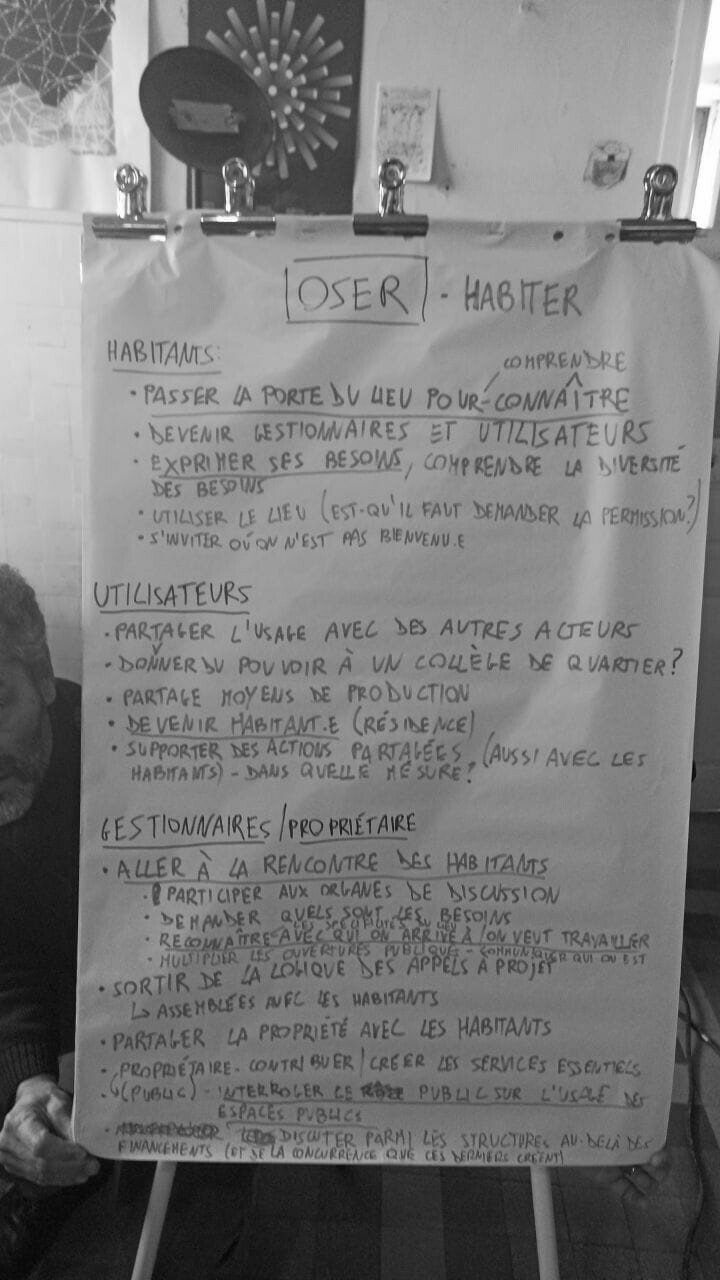 OSER - HABITER
HABITANTS:
COMPRENDRE
• PASSER LA PORTE DU LIEU POUR - CONNAÎTRE
• DEVENIR GESTIONNAIRES ET UTILISATEURS
• EXPRIMER SES BESOINS, COMPRENDRE LA DIVERSITÉ
DES BESOINS
• UTILISER LE LIEU (EST-QU'IL FAUT DEMANDER LA PERMISSION?)
• S'INVITER OÙ ON N'EST PAS BIENVENU.E
UTILISATEURS
• PARTAGER L'USAGE AVEC DES AUTRES ACTEURS
• DONNER DU POUVOIR À UN COLLÈGE DE QUARTIER?
• PARTAGE MOYENS DE PRODUCTION
• DEVENIR HABITANT.E (RÉSIDENCE)
• SUPPORTER DES ACTIONS PARTAGÉES, (AUSSI AVEC LES
HABITANTS) - DANS QUELLE MESURE?
GESTIONNAIRES/PROPRIÉTAIRE
• ALLER À LA RENCONTRE DES HABITANTS
• PARTICIPER AUX ORGANES DE DISCUSSION
• DEMANDER QUELS SONT LES BESOINS
LES SPÉCIFICITÉS DU LIEU
• RECONNAÎTRE AVEC QUI ON ARRIVE À / ON VEUT TRAVAILLER
• MULTIPLIER LES OUVERTURES PUBLIQUES - COMMUNIQUER QUI ON EST
• SORTIR DE LA LOGIQUE DES APPELS À PROJET
↳ ASSEMBLÉES AVEC LES HABITANTS
• PARTAGER LA PROPRIÉTÉ AVEC LES HABITANTS
• PROPRIÉTAIRE - CONTRIBUER/CRÉER LES SERVICES ESSENTIELS
• (PUBLIC) - INTERROGER LE PUBLIC SUR L'USAGE DES
ESPACES PUBLICS
• DISCUTER PARMI LES STRUCTURES AU-DELÀ DES
FINANCEMENTS (ET DE LA CONCURRENCE QUE CES DERNIERS CRÉENT)